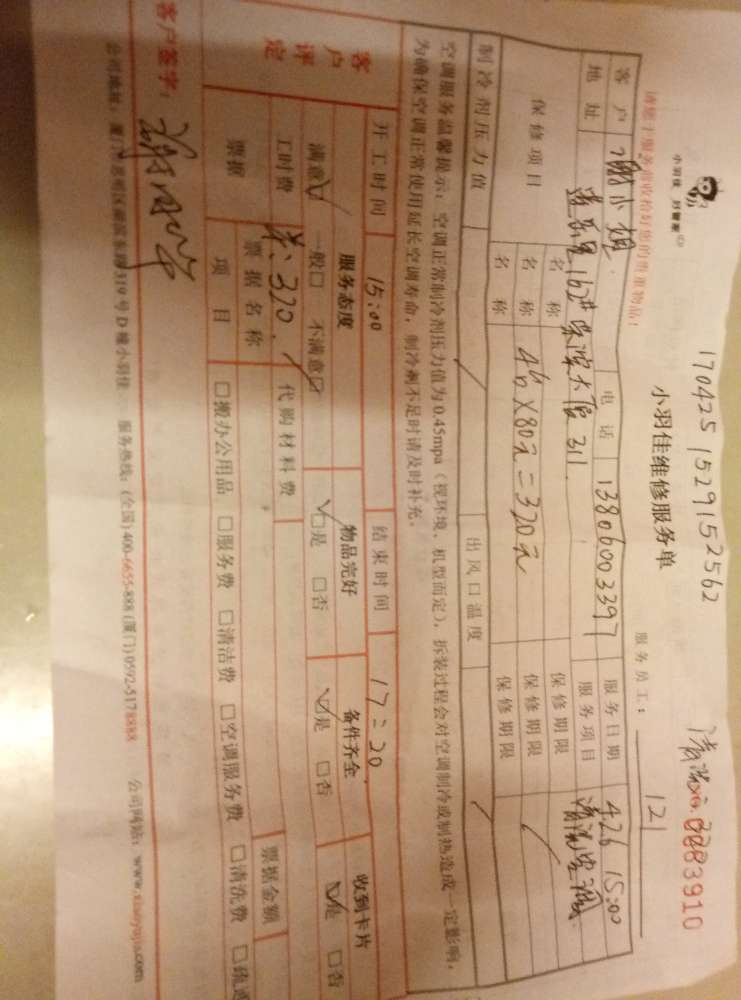 小羽佳 好管家
170425 1529152562
0083910
小羽佳维修服务单
服务员工： 121
请您于服务前收检好您的贵重物品！
客户 谢小姐 电话 13806003397 服务日期 4.26 15:00
地址 162# 大厦 311 服务项目 清洗空调
保修项目 名称 保修期限
名称 4台×80元=320元 保修期限
名称 保修期限
制冷剂压力值 出风口温度
空调服务温馨提示：空调正常制冷剂压力值为0.45mpa（视环境、机型而定），拆装过程会对空调制冷或制热造成一定影响，
为确保空调正常使用延长空调寿命，制冷剂不足时请及时补充。
开工时间 15:00 结束时间 17:20
客户评定 服务态度 物品完好 备件齐全 收到卡片
满意 一般 不满意 是 否 是 否 是 否
工时费 共：320 代购材料费
票据 票据名称 票据金额
项目 搬办公用品 服务费 清洁费 空调服务费 清洗费 疏通
客户签字：
公司地址：厦门 区 319号D幢小羽佳 服务热线：(全国)400-6655-888 (厦门)0592-5178888 公司网站：www.xiaoyujia.com